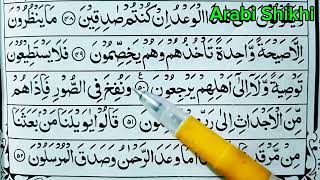 Arabi Shikhi
الْوَعْدُ اِنْ كُنْتُمْ صٰدِقِيْنَ ۴۸ مَا يَنْظُرُوْنَ
اِلَّا صَيْحَةً وَّاحِدَةً تَاْخُذُهُمْ وَهُمْ يَخِصِّمُوْنَ ۴۹ فَلَا يَسْتَطِيْعُوْنَ
تَوْصِيَةً وَّلَاۤ اِلٰۤى اَهْلِهِمْ يَرْجِعُوْنَ ۵۰ وَنُفِخَ فِى الصُّوْرِ فَاِذَا هُمْ
مِّنَ الْاَجْدَاثِ اِلٰى ۵۱ قَالُوْا يٰوَيْلَنَا مَنْۢ بَعَثَنَا
مِنْ وَعَدَ الرَّحْمٰنُ وَصَدَقَ الْمُرْسَلُوْنَ ۵۲